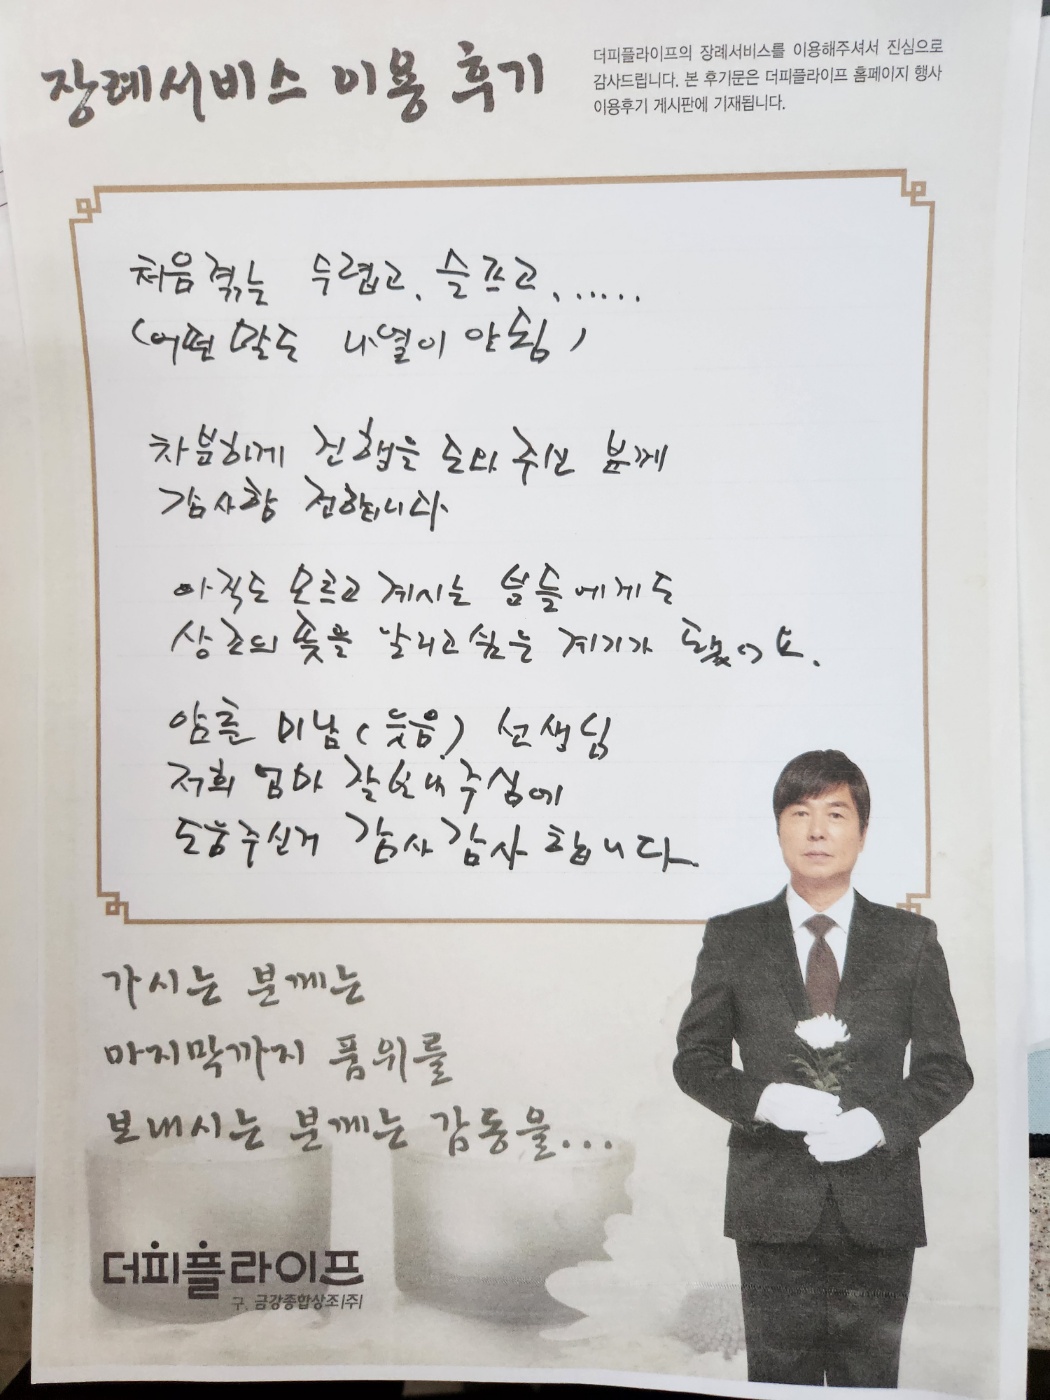 장례서비스 이용 후기
더피플라이프의 장례서비스를 이용해주셔서 진심으로
감사드립니다. 본 후기문은 더피플라이프 홈페이지 행사
이용후기 게시판에 기재됩니다.
처음겪는 두렵고, 슬프고, ......
(어떤 말도 나열이 안됨)
차분하게 진행을 도와 주신 분께
감사함 전합니다.
아직도 모르고 계시는 분들에게도
상조의 뜻을 날리고싶은 계기가 됐어요.
미남(웃음) 선생님
저희 엄마 잘보내주심에
도움주신거 감사감사 합니다.
가시는 분께는
마지막까지 품위를
보내시는 분께는 감동을...
더피플라이프
구. 금강종합상조(주)